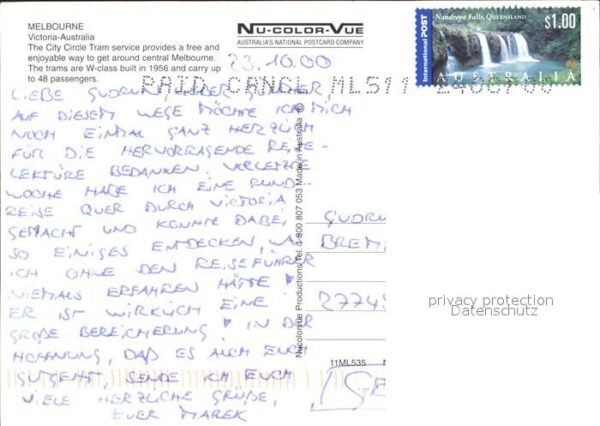 MELBOURNE
Victoria-Australia
The City Circle Tram service provides a free and
enjoyable way to get around central Melbourne.
The trams are W-class built in 1956 and carry up
to 48 passengers.
NU-COLOR-VUE
AUSTRALIA'S NATIONAL POSTCARD COMPANY
International POST
Nandroya Falls, QUEENSLAND
$1.00
AUSTRALIA
23.10.00
PAID CANCL ML511
LIEBE GUDRUN, LIEBER
AUF DIESEM WEGE MÖCHTE ICH MICH
NOCH EINMAL GANZ HERZLICH
FÜR DIE HERVORRAGENDE REISE-
LEKTÜRE BEDANKEN. VORLETZTE
WOCHE HABE ICH EINE RUND-
REISE QUER DURCH VICTORIA
GEMACHT UND KONNTE DABEI
SO EINIGES ENTDECKEN, WAS
ICH OHNE DEN REISEFÜHRER
NIEMALS ERFAHREN HÄTTE!
ER IST WIRKLICH EINE
GROßE BEREICHERUNG! IN DER
HOFFNUNG, DAß ES AUCH EUCH
GUTGEHT, SENDE ICH EUCH
VIELE HERZLICHE GRÜßE,
EUER MAREK
Nucolorvue Productions Tel. 1 800 807 053 Made in Australia ©
GUDRU
BREM
2774
11ML535
privacy protection
Datenschutz